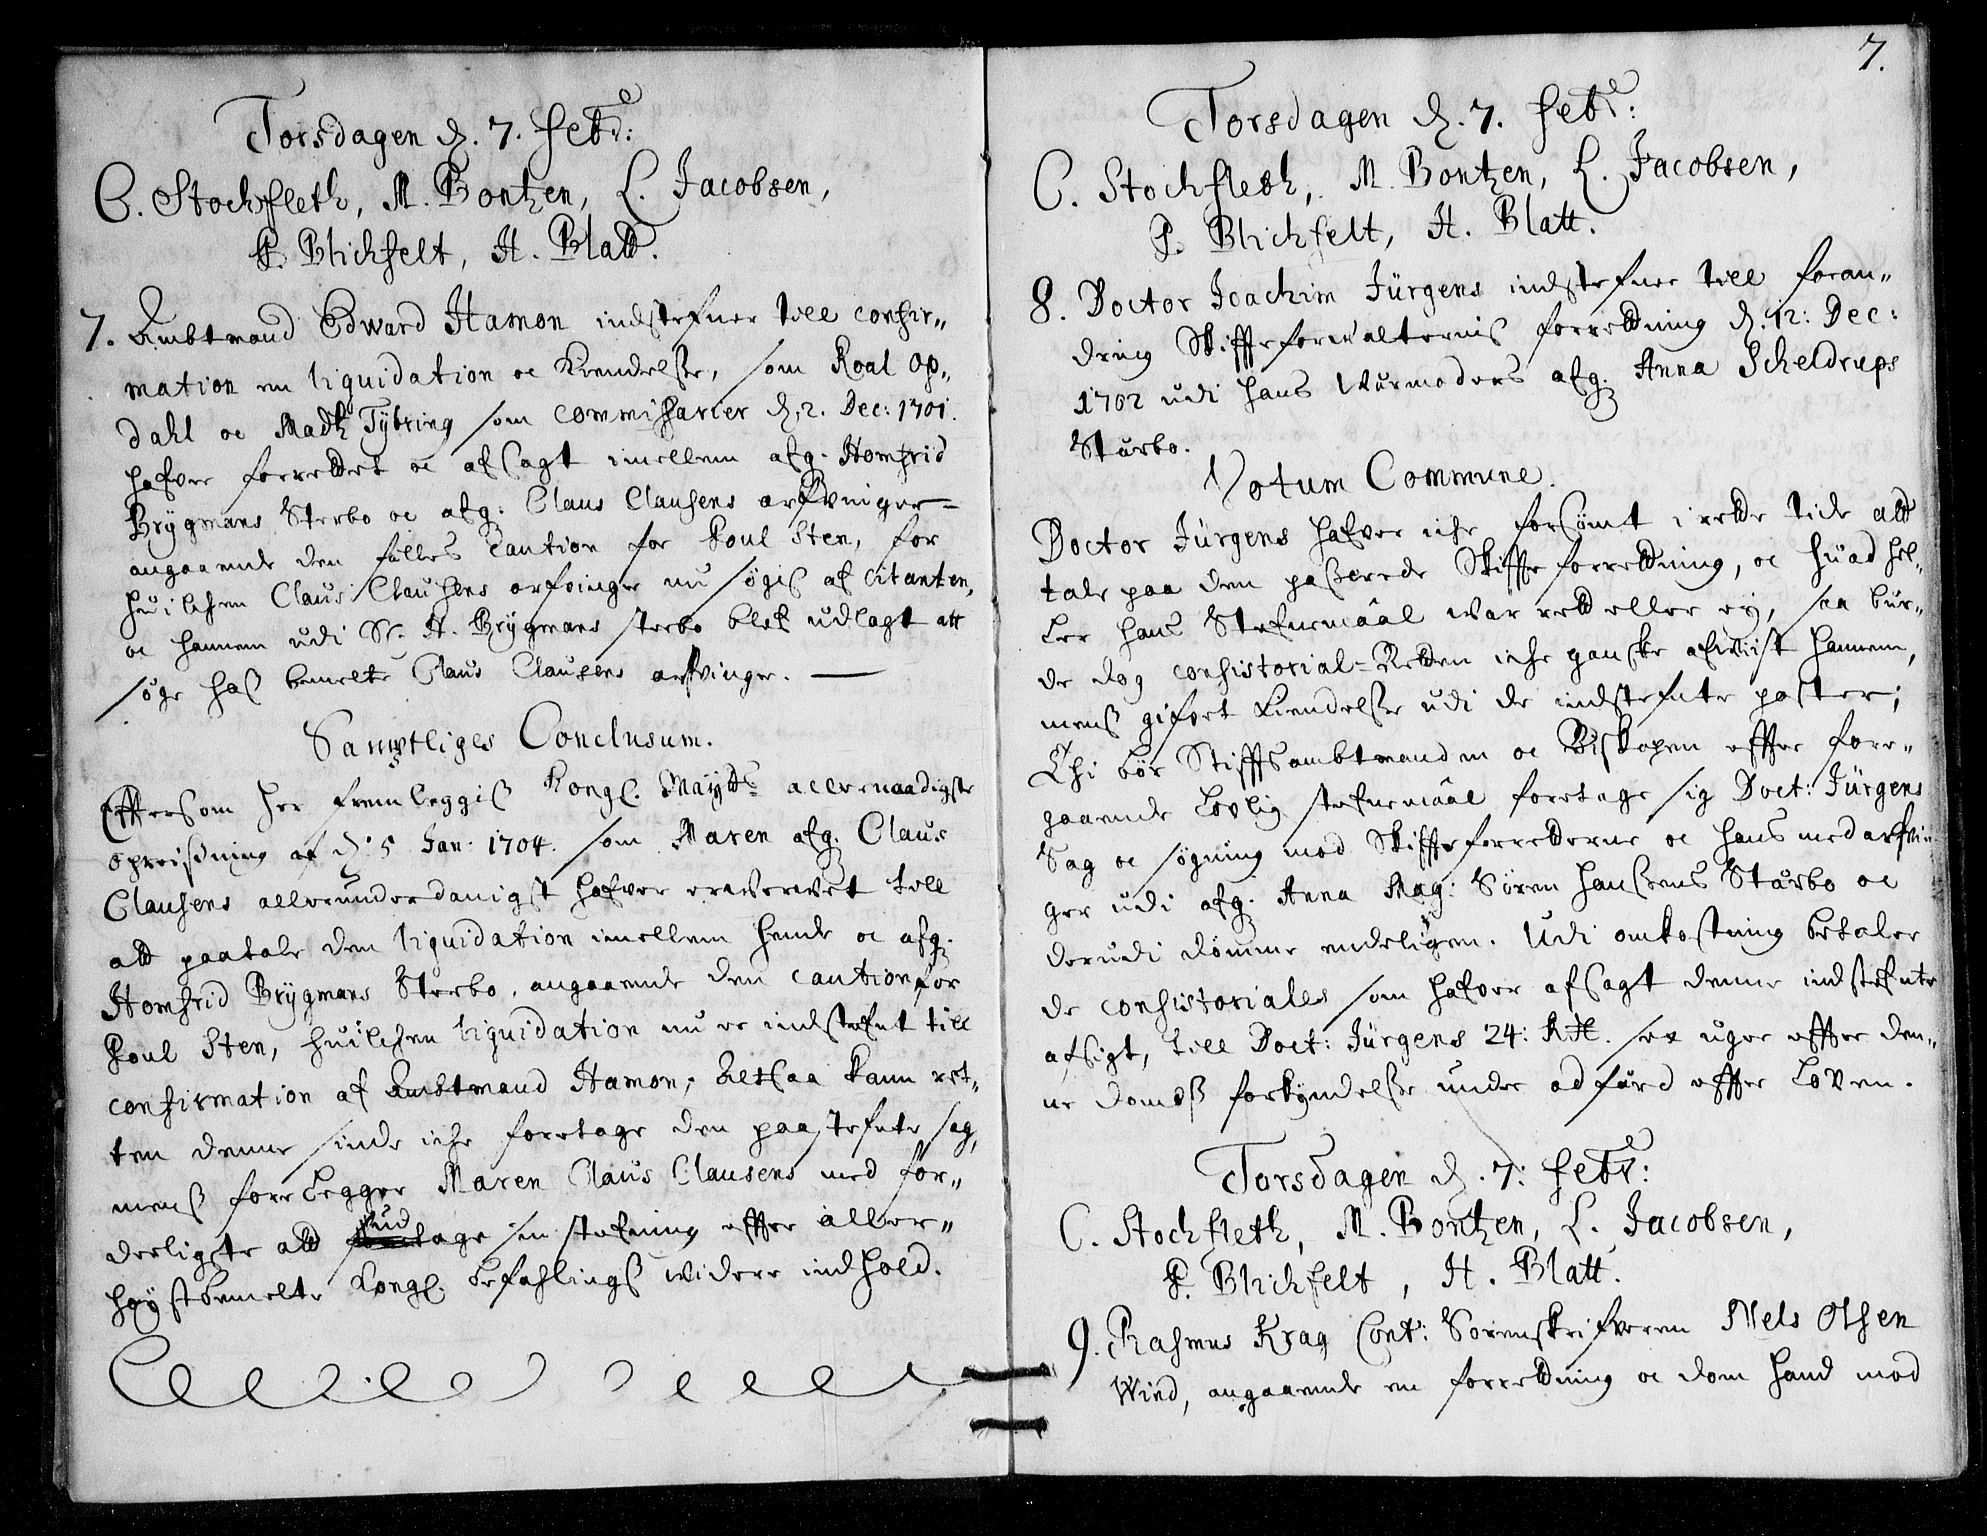 Torsdagen d. 7. febr:
C. Stochfleth, M. Bontzen, L. Jacobsen,
P. Blichfelt, H. Blatt.
7. Ambtmand Edward Hamon indstefner till confir„
mation en liquidation oc Kiendelse, som Roal Op„
dahl oc Madtz Tybring som commissarier d. 2. Dec: 1701.
hafver forrettet oc afsagt imellem afg. Homfrid
Brygmans Sterbo oc afg. Claus Clausens arfvinger
angaaende den fælles Caution for Poul Sten, for
huilchen Claus Clausens arfvinger nu søgis af citanten,
oc hannem udi Sr. H. Brygmans sterbo blef udlagt att
søge hoß bemelte Claus Clausens arfvinger.
Samptliges Conclusum.
Eftersom her fremleggis Kongl. Mayts allernaadigste
opreißning af d. 5 Jan: 1704. som Maren afg. Claus
Clausens allerunderdanigst hafver erwerwet till
att paatale den liquidation imellem hende oc afg.
Homfrid Brygmans Sterbo, angaaende den caution for
Poul Sten, huilchen liquidation nu er indstefnt till
confirmation af Ambtmand Hamon; Altsaa kann ret„
ten denne sinde iche foretage den paastefnte sag,
mens forelegger Maren Claus Clausens med for„
derligste att udtage sin stefning effter aller„
høystbemelte Kongl. befahlings widere indhold.
7.
Torsdagen d. 7. febr:
C. Stochfleth, M. Bontzen, L. Jacobsen,
P. Blichfelt, H. Blatt.
8. Doctor Joachim Jürgens indstefner till foran„
dring Skiffteforwalternis forretning d. 12: Dec:
1702 udi hans Wærmoders afg. Anna Scheldrups
Stærbo.
Votum Commune.
Doctor Jürgens hafver iche forsømt i rette tide att
tale paa den passerede Skiffteforretning, oc huad hel„
ler hans Stefnemaal war rett eller ey, saa bur„
de dog consistorial-Retten iche ganske afwiist hannem,
mens gifvet Kiendelse udi de indstefnte poster;
Thi bør Stifftsambtmanden oc Biskopen effter fore„
gaaende Lovlig stefnemaal foretage sig Doct: Jürgens
Sag oc søgning mod Skiffteforretterne oc hans medarfvin„
ger udi afg. Anna Mag: Sören Hansens Stærbo oc
derudi dømme endeligen. Udi omkostning betaler
de consistoriales som hafver afsagt denne indstefnte
afsigt, till Doct: Jürgens 24: Rdl. sex uger effter den„
ne domß forkyndelse under adfærd effter Loven.
Torsdagen d. 7: febr:
C. Stochfleth, M. Bontzen, L. Jacobsen,
P. Blichfelt, H. Blatt.
9. Rasmus Krag Cont: Sorenskrifveren Niels Olsen
Wind, angaaende en forretning oc dom hand mod